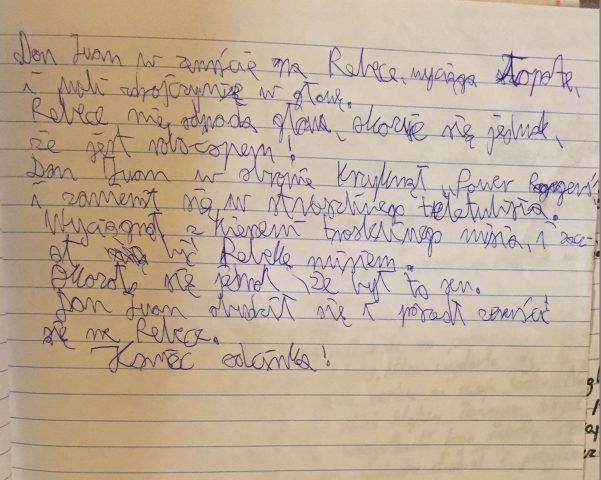 Don Juan w zemście na Rebece, wyciąga łopatę,
i wali zdrajczynię w głowę.
Rebece nie odpada głowa, okazuje się jednak,
że jest robocopem!
Don Juan w obronie krzyknął "Power Rangers"
i zamienił się w straszliwego teletubisia.
Wyciągnął z kieszeni troskliwego misia, i zacz-
ął bić Rebekę misiem.
Okazało się jednak, że był to sen.
Don Juan obudził się i poszedł zemścić
się na Rebece.
Koniec odcinka!